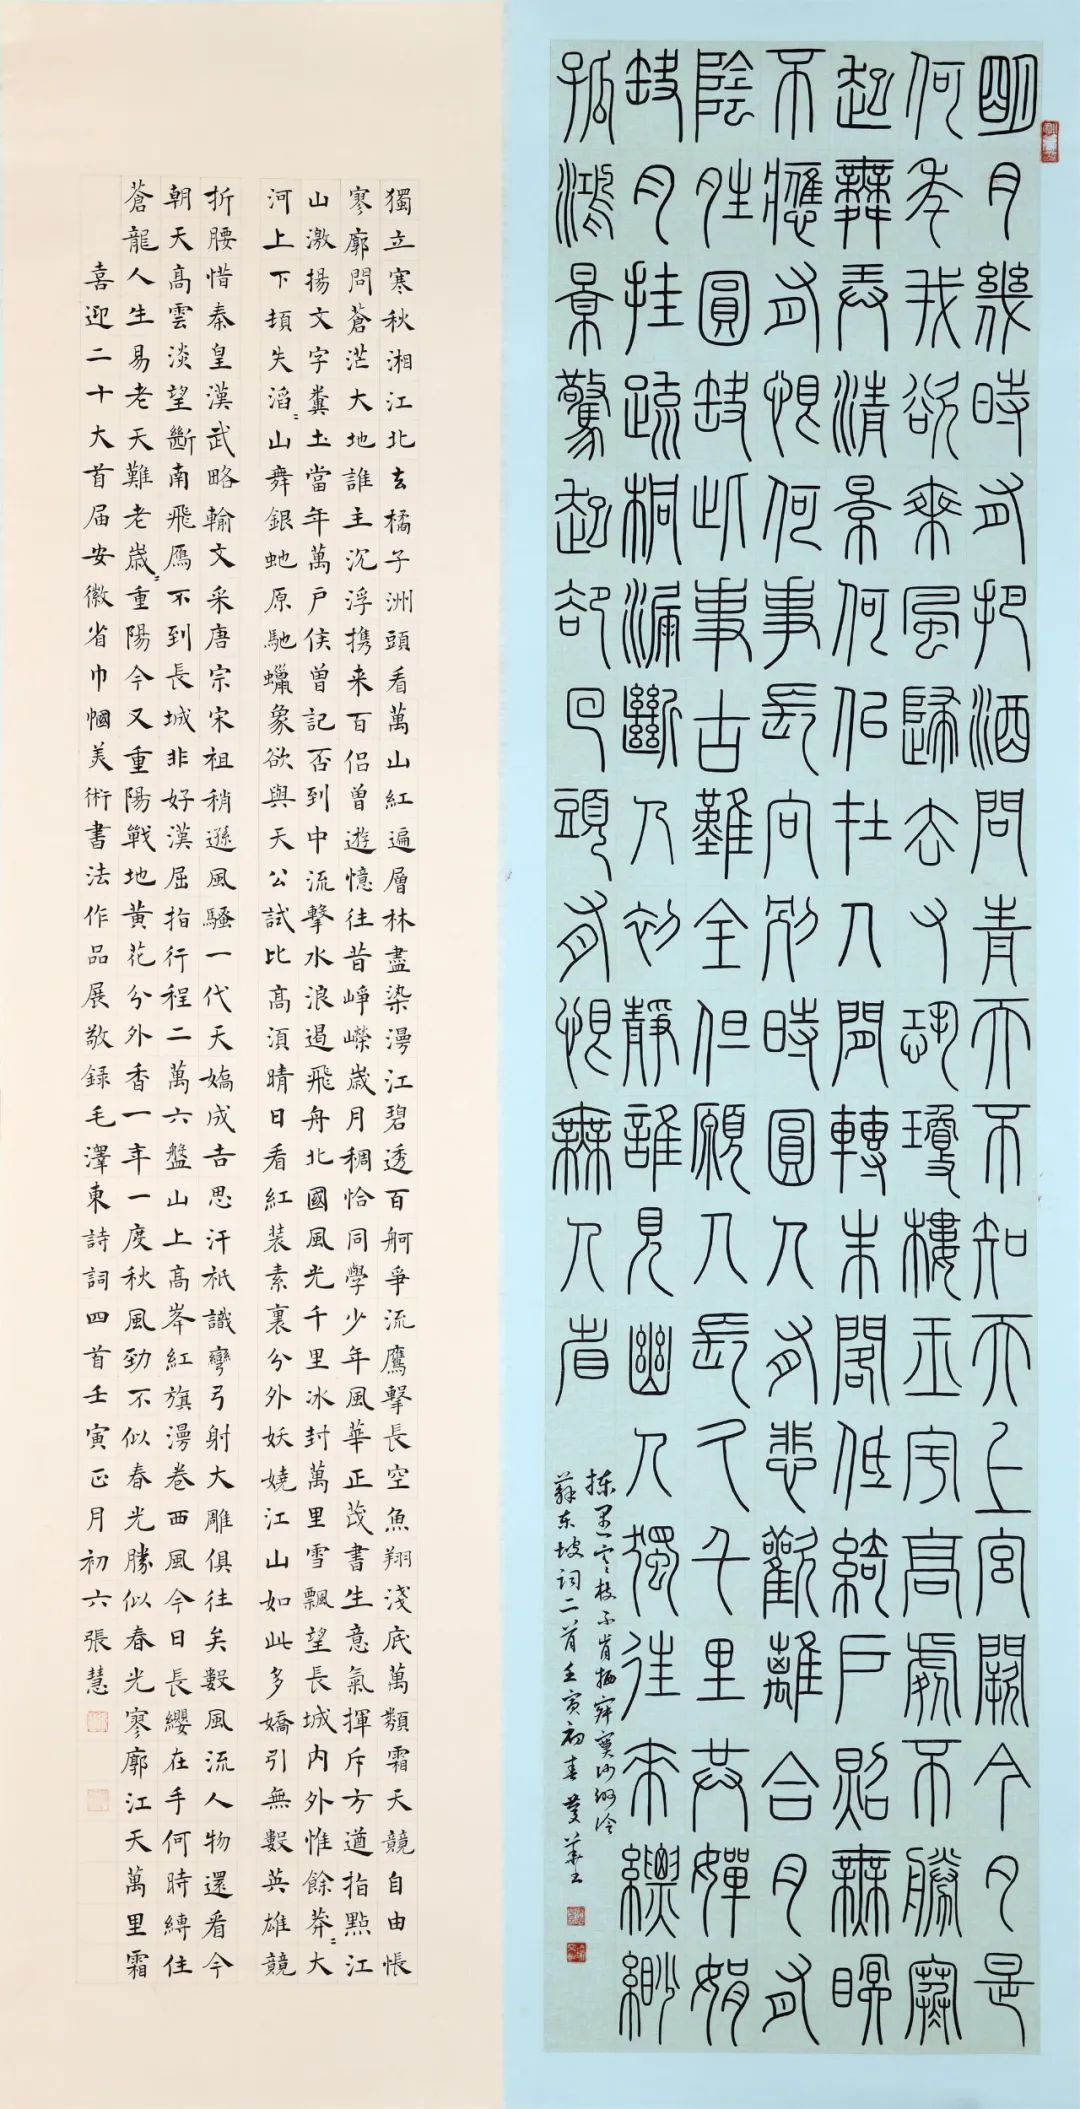 明月幾時有把酒問青天不知天上宫闕今夕是
何年我欲乘風歸去又恐瓊樓玉宇高處不勝寒
起舞弄清景何似在人間轉朱閣低綺户照無眠
不應有恨何事長向别時圓人有悲歡離合月有
陰晴圓缺此事古難全但願人長久千里共嬋娟
缺月挂疏桐漏斷人初靜誰見幽人獨往來縹緲
孤鴻景驚起却回頭有恨無人省
揀盡寒枝不肯栖寂寞沙洲冷
蘇東坡詞二首壬寅初春
獨立寒秋湘江北去橘子洲頭看萬山紅遍層林盡染漫江碧透百舸爭流鷹擊長空魚翔淺底萬類霜天競自由悵
寥廓問蒼茫大地誰主沉浮携来百侣曾遊憶往昔崢嶸歲月稠恰同學少年風華正茂書生意氣揮斥方遒指點江
山激揚文字糞土當年萬户侯曾記否到中流擊水浪遏飛舟北國風光千里冰封萬里雪飄望長城内外惟餘莽〻大
河上下頓失滔〻山舞銀蛇原馳蠟象欲與天公試比高須晴日看紅装素裹分外妖嬈江山如此多嬌引無數英雄競
折腰惜秦皇漢武略輸文采唐宗宋祖稍遜風騷一代天嬌成吉思汗衹識彎弓射大雕俱往矣數風流人物還看今
朝天高雲淡望斷南飛雁不到長城非好漢屈指行程二萬六盤山上高峰紅旗漫卷西風今日長纓在手何時縛住
蒼龍人生易老天難老歲〻重陽今又重陽戰地黄花分外香一年一度秋風勁不似春光勝似春光寥廓江天萬里霜
喜迎二十大首届安徽省巾幗美術書法作品展敬録毛澤東詩詞四首壬寅正月初六張慧